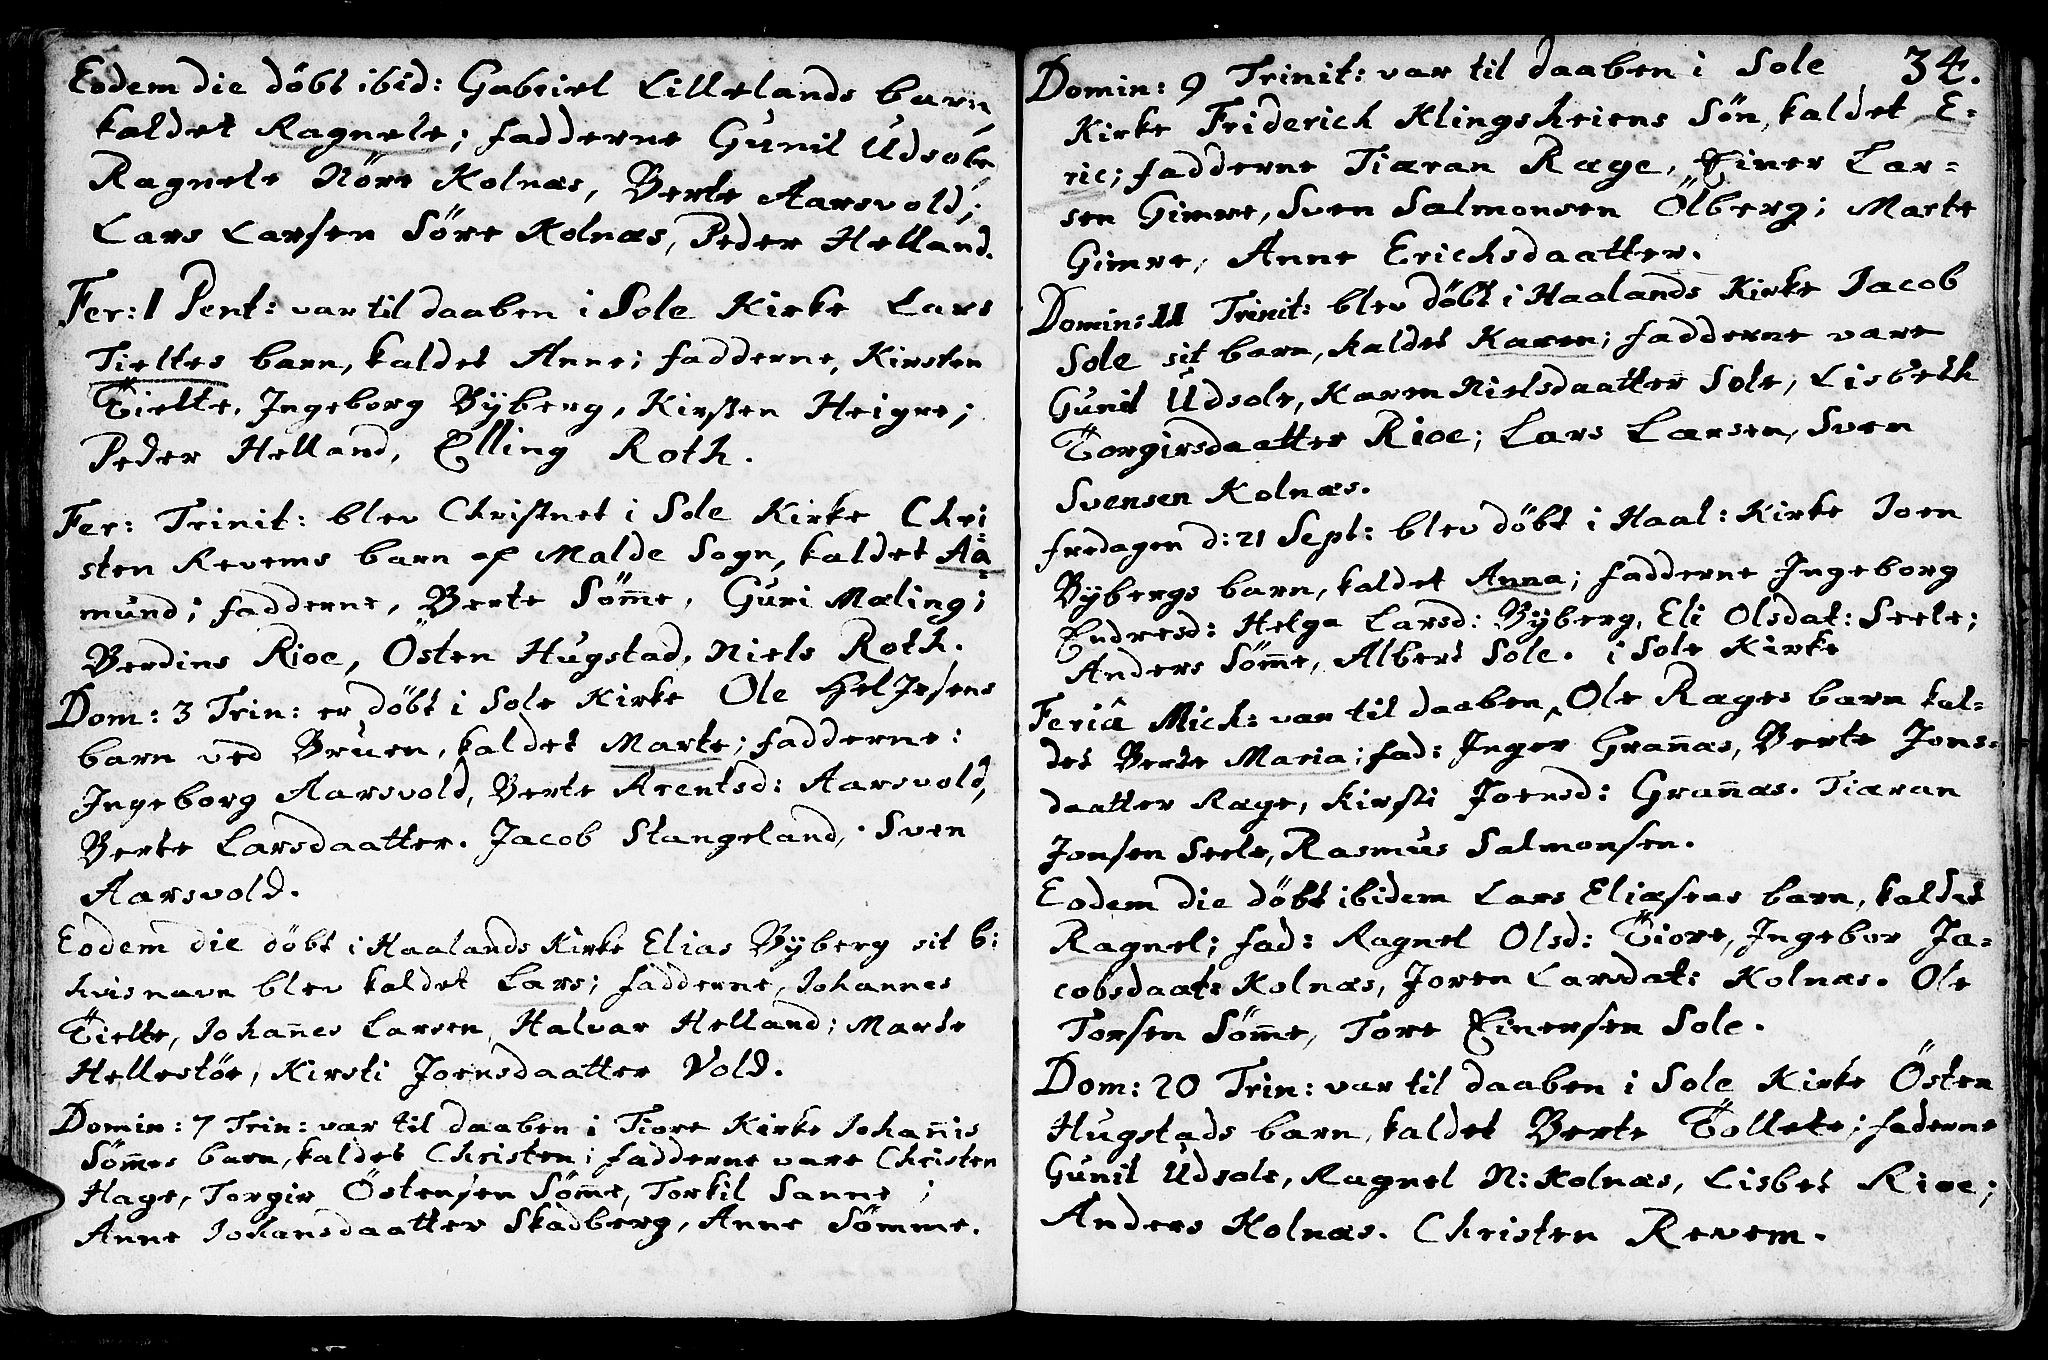 Eodem die döbt ibid: Gabriel Lillelands barn
kaldet Ragnele; fadderne Gunil Udsole
Ragnele Nöre Kolnæs, Berte Aarsvold;
Lars Larsen Söre Kolnæs, Peder Helland.
Fer: 1 Pent: var til daaben i Sole Kirke Lars
Tieltes barn, kaldet Anne; fadderne, Kirsten
Tielte, Ingeborg Byberg, Kirsten Heigre;
Peder Helland, Elling Roth.
Fer: Trinit: blev Christnet i Sole Kirke Chri
sten Revems barn af Malde Sogn, kaldet Aa
mund; fadderne, Berte Söm̄e, Guri Mæling;
Berdines Rioe, Östen Hugstad, Niels Roth.
Dom: 3 Trin: er döbt i Sole Kirke Ole
barn ved Bruen, kaldet Marte; fadderne:
Ingeborg Aarsvold, Berte Arentsd: Aarsvold,
Berte Larsdaatter. Jacob Stangeland, Sven
Aarsvold.
Eodem die döbt i Haalands Kirke Elias Byberg sit b:
hvis navn blev kaldet Lars; fadderne, Johannes
Tielte, Johan̄es Larsen, Halvar Helland; Marte
Hellestöe, Kirsti Joensdaatter Vold.
Domin: 7 Trin: var til daaben i Tiore Kirke Johan̄is
Söm̄es barn, kaldet Christen; fadderne vare Christen
Hage, Torgir Östensen Söm̄e, Torkil Sanne;
Anne Johansdaatter Skadberg, Anne Sömme.
34.
Domin: 9 Trinit: var til daaben i Sole
Kirke Friderich Klingsheiens Sön, kaldet E=
ric; fadderne Tiæran Ræge, Einer Lar=
sen Gimre, Sven Salmonsen Ölberg; Marte
Gimre, Anne Erichsdaatter.
Domin: 11 Trinit: blev döbt i Haalands Kirke Jacob
Sole sit barn, kaldet Karen; fadderne vare
Gunil Udsole, Karen Nielsdaatter Sole, Lisbeth
Torgirsdaatter Rioe; Lars Larsen, Sven
Svensen Kolnæs.
fredagen d: 21 Sept: blev döbt i Haal: Kirke Joen
Bybergs barn, kaldet Anna; fadderne Ingeborg
Endresd: Helga Larsd: Byberg, Eli Olsdat: Seele;
Anders Söm̄e, Albert Sole. i Sole Kirke
Feriâ Mich: var til daaben ^ Ole Ræges barn kal=
det Berte Maria; fad: Inger Gran̄æs, Berte Jons=
daatter Ræge, Kirsti Joensd: Gran̄æs. Tiæran
Jonsen Seele, Rasmus Salmonsen.
Eodem die döbt ibidem Lars Eliasens barn, kaldet
Ragnel; fad: Ragnel Olsd: Tiore, Ingebor Ja=
cobsdaat: Kolnæs, Joren Larsdat: Kolnæs. Ole
Torsen Söm̄e, Tore Einersen Sole.
Dom: 20 Trin: var til daaben i Sole Kirke Östen
Hugstads barn, kaldet Berte Tollete; faderne
Gunil Udsole, Ragnel N: Kolnæs, Lisbet Rioe;
Anders Kolnæs. Christen Revem.